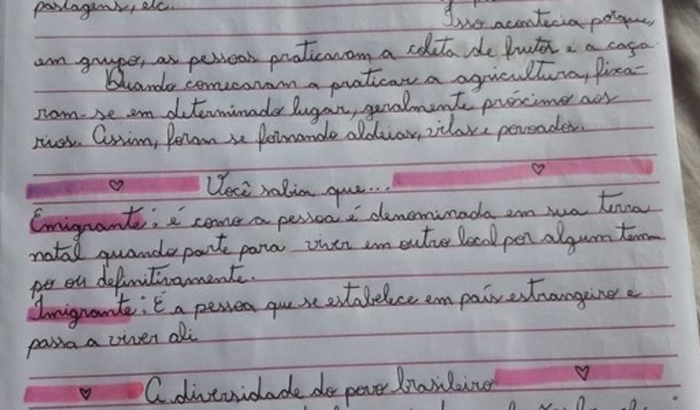 pastagens, etc.
Isso acontecia porque,
em grupo, as pessoas praticavam a coleta de frutos e a caça.
Quando começaram a praticar a agricultura, fixa-
ram-se em determinado lugar, geralmente próximo aos
rios. Assim, foram se formando aldeias, vilas e povoados.
♡ Você sabia que... ♡
Emigrante: é como a pessoa é denominada em sua terra
natal quando parte para viver em outro local por algum tem-
po ou definitivamente.
Imigrante: É a pessoa que se estabelece em país estrangeiro e
passa a viver ali
♥ A diversidade do povo brasileiro ♡